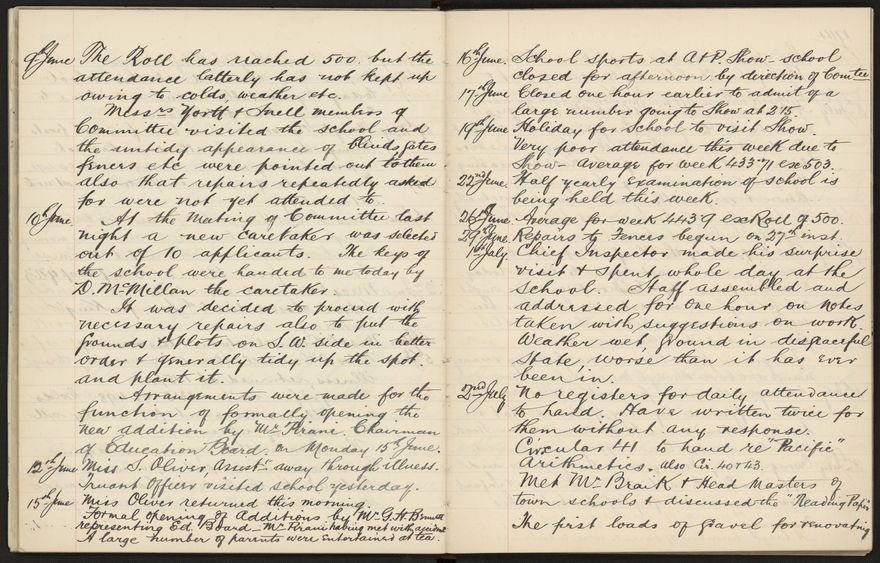 9th June The Roll has reached 500. but the
attendance latterly has not kept up
owing to colds, weather etc.
Messrs York & Snell members of
Committee visited the school and
the untidy appearance of blinds, gates
fences etc were pointed out to them
also that repairs repeatedly asked
for were not yet attended to.
10th June. At the Meeting of Committee last
night a new caretaker was selected
out of 10 applicants. The keys of
the school were handed to me today by
D. McMillan the caretaker.
It was decided to proceed with
necessary repairs also to put the
grounds & plots on S.W. side in better
order & generally tidy up the spot
and plant it.
Arrangements were made for the
function of formally opening the
new addition by Mr Pirani. Chairman
of Education Board. on Monday 15th June.
12th June Miss S. Oliver, Assist. away through illness.
Truant Officer visited school yesterday.
15th June Miss Oliver returned this morning.
Formal opening of Additions by Mr G. H. Bennett
representing Ed. Board Mr Pirani having met with accident
A large number of parents were entertained at tea.
16th June. School sports at A & P. Show - school
closed for afternoon by direction of Comtee
17th June Closed one hour earlier to admit of a
large number going to Show at 2.15.
19th June Holiday for School to visit Show.
Very poor attendance this week due to
Show - Average for week 433.71 ex 503.
22nd June. Half yearly Examination of school is
being held this week.
26th June Average for week 443.9 ex Roll of 500.
29th June Repairs to Fences begun on 27th inst.
1st July. Chief Inspector made his surprise
visit & spent whole day at the
school. Staff assembled and
addressed for one hour on notes
taken with suggestions on work.
Weather wet, ground in disgraceful
state, worse than it has ever
been in.
2nd July No registers for daily attendance
to hand. Have written twice for
them without any response.
Circular 41 to hand re "Pacific"
Arithmetics. also Cir. 40 & 43.
Met Mr Braik & Head Masters of
town schools & discussed the "Reading Paper
The first loads of gravel for renovating